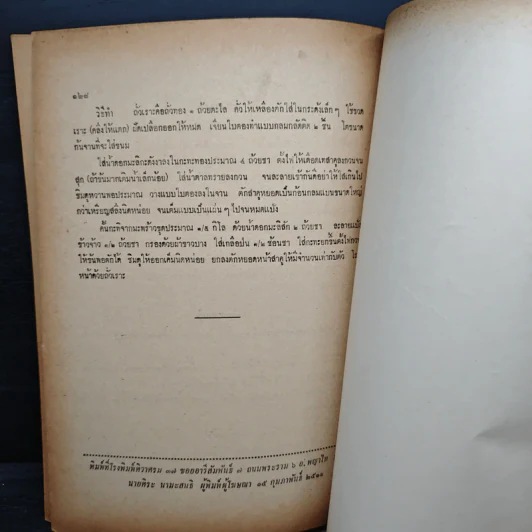 ๑๒๘
วิธีทำ ถั่วเราะคือถั่วทอง ๑ ถ้วยตะไล คั่วให้เหลืองตักใส่ในกระด้งเล็กๆ ใช้ขวด
เราะ (คลึงให้แตก) ฝัดเปลือกออกให้หมด เจียนใบตองทำแบบกลมกลัดติด ๒ ชั้น โตขนาด
ก้นจานที่จะใส่ขนม
ใส่น้ำดอกมะลิกะดังงาลงในกะทะทองประมาณ ๔ ถ้วยชา ตั้งไฟให้เดือดเทสาคูลงกวนจน
สุก (ถ้าข้นมากเติมน้ำเล็กน้อย) ใส่น้ำตาลทรายลงกวน จนละลายเข้ากันดีอย่าให้
ชิมดูหวานพอประมาณ วางแบบใบตองลงในจาน ตักสาคูหยอดเป็นก้อนกลมแบนขนาดใหญ่
กว่าเหรียญสลึงนิดหน่อย จนเต็มแบบเป็นแผ่นๆ ไปจนหมดแป้ง
คั้นกะทิจากมะพร้าวขูดประมาณ ๑/๕ กิโล ด้วยน้ำดอกมะลิสัก ๒ ถ้วยชา ละลายแป้ง
ข้าวจ้าว ๑/๒ ถ้วยชา กรองด้วยผ้าขาวบาง ใส่เกลือป่น ๑/๒ ช้อนชา ใส่กะทะยกขึ้นตั้งไฟ
ให้ข้นพอตักได้ ชิมดูให้ออกเค็มนิดหน่อย ยกลงตักหยอดหน้าสาคูให้มีจำนวนเท่ากับตัว
หน้าด้วยถั่วเราะ
พิมพ์ที่โรงพิมพ์ทิวาศรม ๓๗ ซอยอารีสัมพันธ์ ๗ ถนนพระราม ๖ อ. พญาไท
นายศิระ นามะสนธิ ผู้พิมพ์ผู้โฆษณา ๑๕ กุมภาพันธ์ ๒๕๑๑